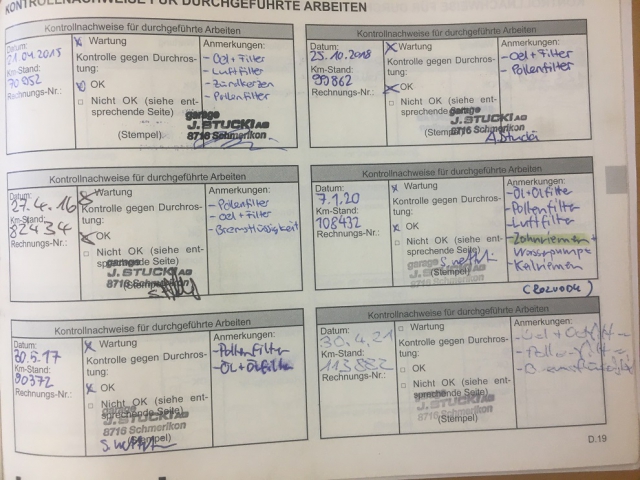 KONTROLLNACHWEISE FÜR DURCHGEFÜHRTE ARBEITEN
Kontrollnachweise für durchgeführte Arbeiten
Datum:
21.04.2015
Km-Stand:
70852
Rechnungs-Nr.:
x Wartung
Kontrolle gegen Durchros-
tung:
OK
□ Nicht OK (siehe ent-
sprechende Seite)
(Stempel)
garage
J. STUCKI AG
8716 Schmerikon
Anmerkungen:
- Oel + Filter
- Luftfilter
- Zündkerzen
- Pollenfilter
Kontrollnachweise für durchgeführte Arbeiten
Datum:
25.10.2018
Km-Stand:
99862
Rechnungs-Nr.:
x Wartung
Kontrolle gegen Durchros-
tung:
x OK
□ Nicht OK (siehe ent-
sprechende
(Stempel)
garage
J. STUCKI AG
8716 Schmerikon
Anmerkungen:
- Oel + Filter
- Pollenfilter
Kontrollnachweise für durchgeführte Arbeiten
Datum:
27.4.16
Km-Stand:
82434
Rechnungs-Nr.:
Wartung
Kontrolle gegen Durchros-
tung:
x OK
□ Nicht OK (siehe ent-
sprechende Seite)
garage
J. STUCKI AG
8716 Schmerikon
Anmerkungen:
- Pollenfilter
- oel + Filter
- Bremsflüssigkeit
Kontrollnachweise für durchgeführte Arbeiten
Datum:
7.1.20
Km-Stand:
108432
Rechnungs-Nr.:
x Wartung
Kontrolle gegen Durchros-
tung:
x OK
□ Nicht OK (siehe ent-
sprechende Seite)
(Stempel)
garage
J. STUCKI AG
8716 Schmerikon
Anmerkungen:
- Öl + Ölfilter
- Pollenfilter
- Luftfilter
- Zahnriemen +
Wasserpumpe
- Keilriemen
Kontrollnachweise für durchgeführte Arbeiten
Datum:
30.5.17
Km-Stand:
90372
Rechnungs-Nr.:
x Wartung
Kontrolle gegen Durchros-
tung:
x OK
□ Nicht OK (siehe ent-
sprechende Seite)
(Stempel)
garage
J. STUCKI AG
8716 Schmerikon
Anmerkungen:
- Pollenfilter
- Öl + Ölfilter
Kontrollnachweise für durchgeführte Arbeiten
Datum:
30.4.21
Km-Stand:
113882
Rechnungs-Nr.:
□ Wartung
Kontrolle gegen Durchros-
tung:
□ OK
□ Nicht OK (siehe ent-
sprechende Seite)
(Stempel)
garage
J. STUCKI AG
8716 Schmerikon
Anmerkungen:
D.19